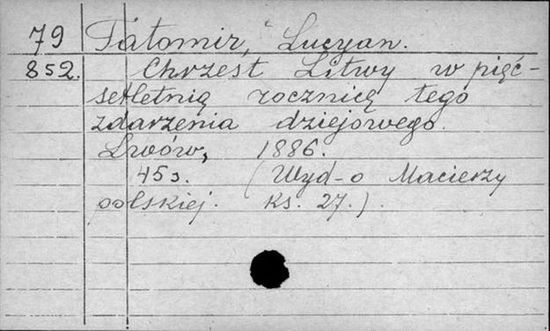 79 Tatomir, Lucyan.
852. Chrzest Litwy w pięć-
setletnią rocznicę tego
zdarzenia dziejowego.
Lwów, 1886.
45 s. (Wyd-o Macierzy
polskiej. Ks. 27.).